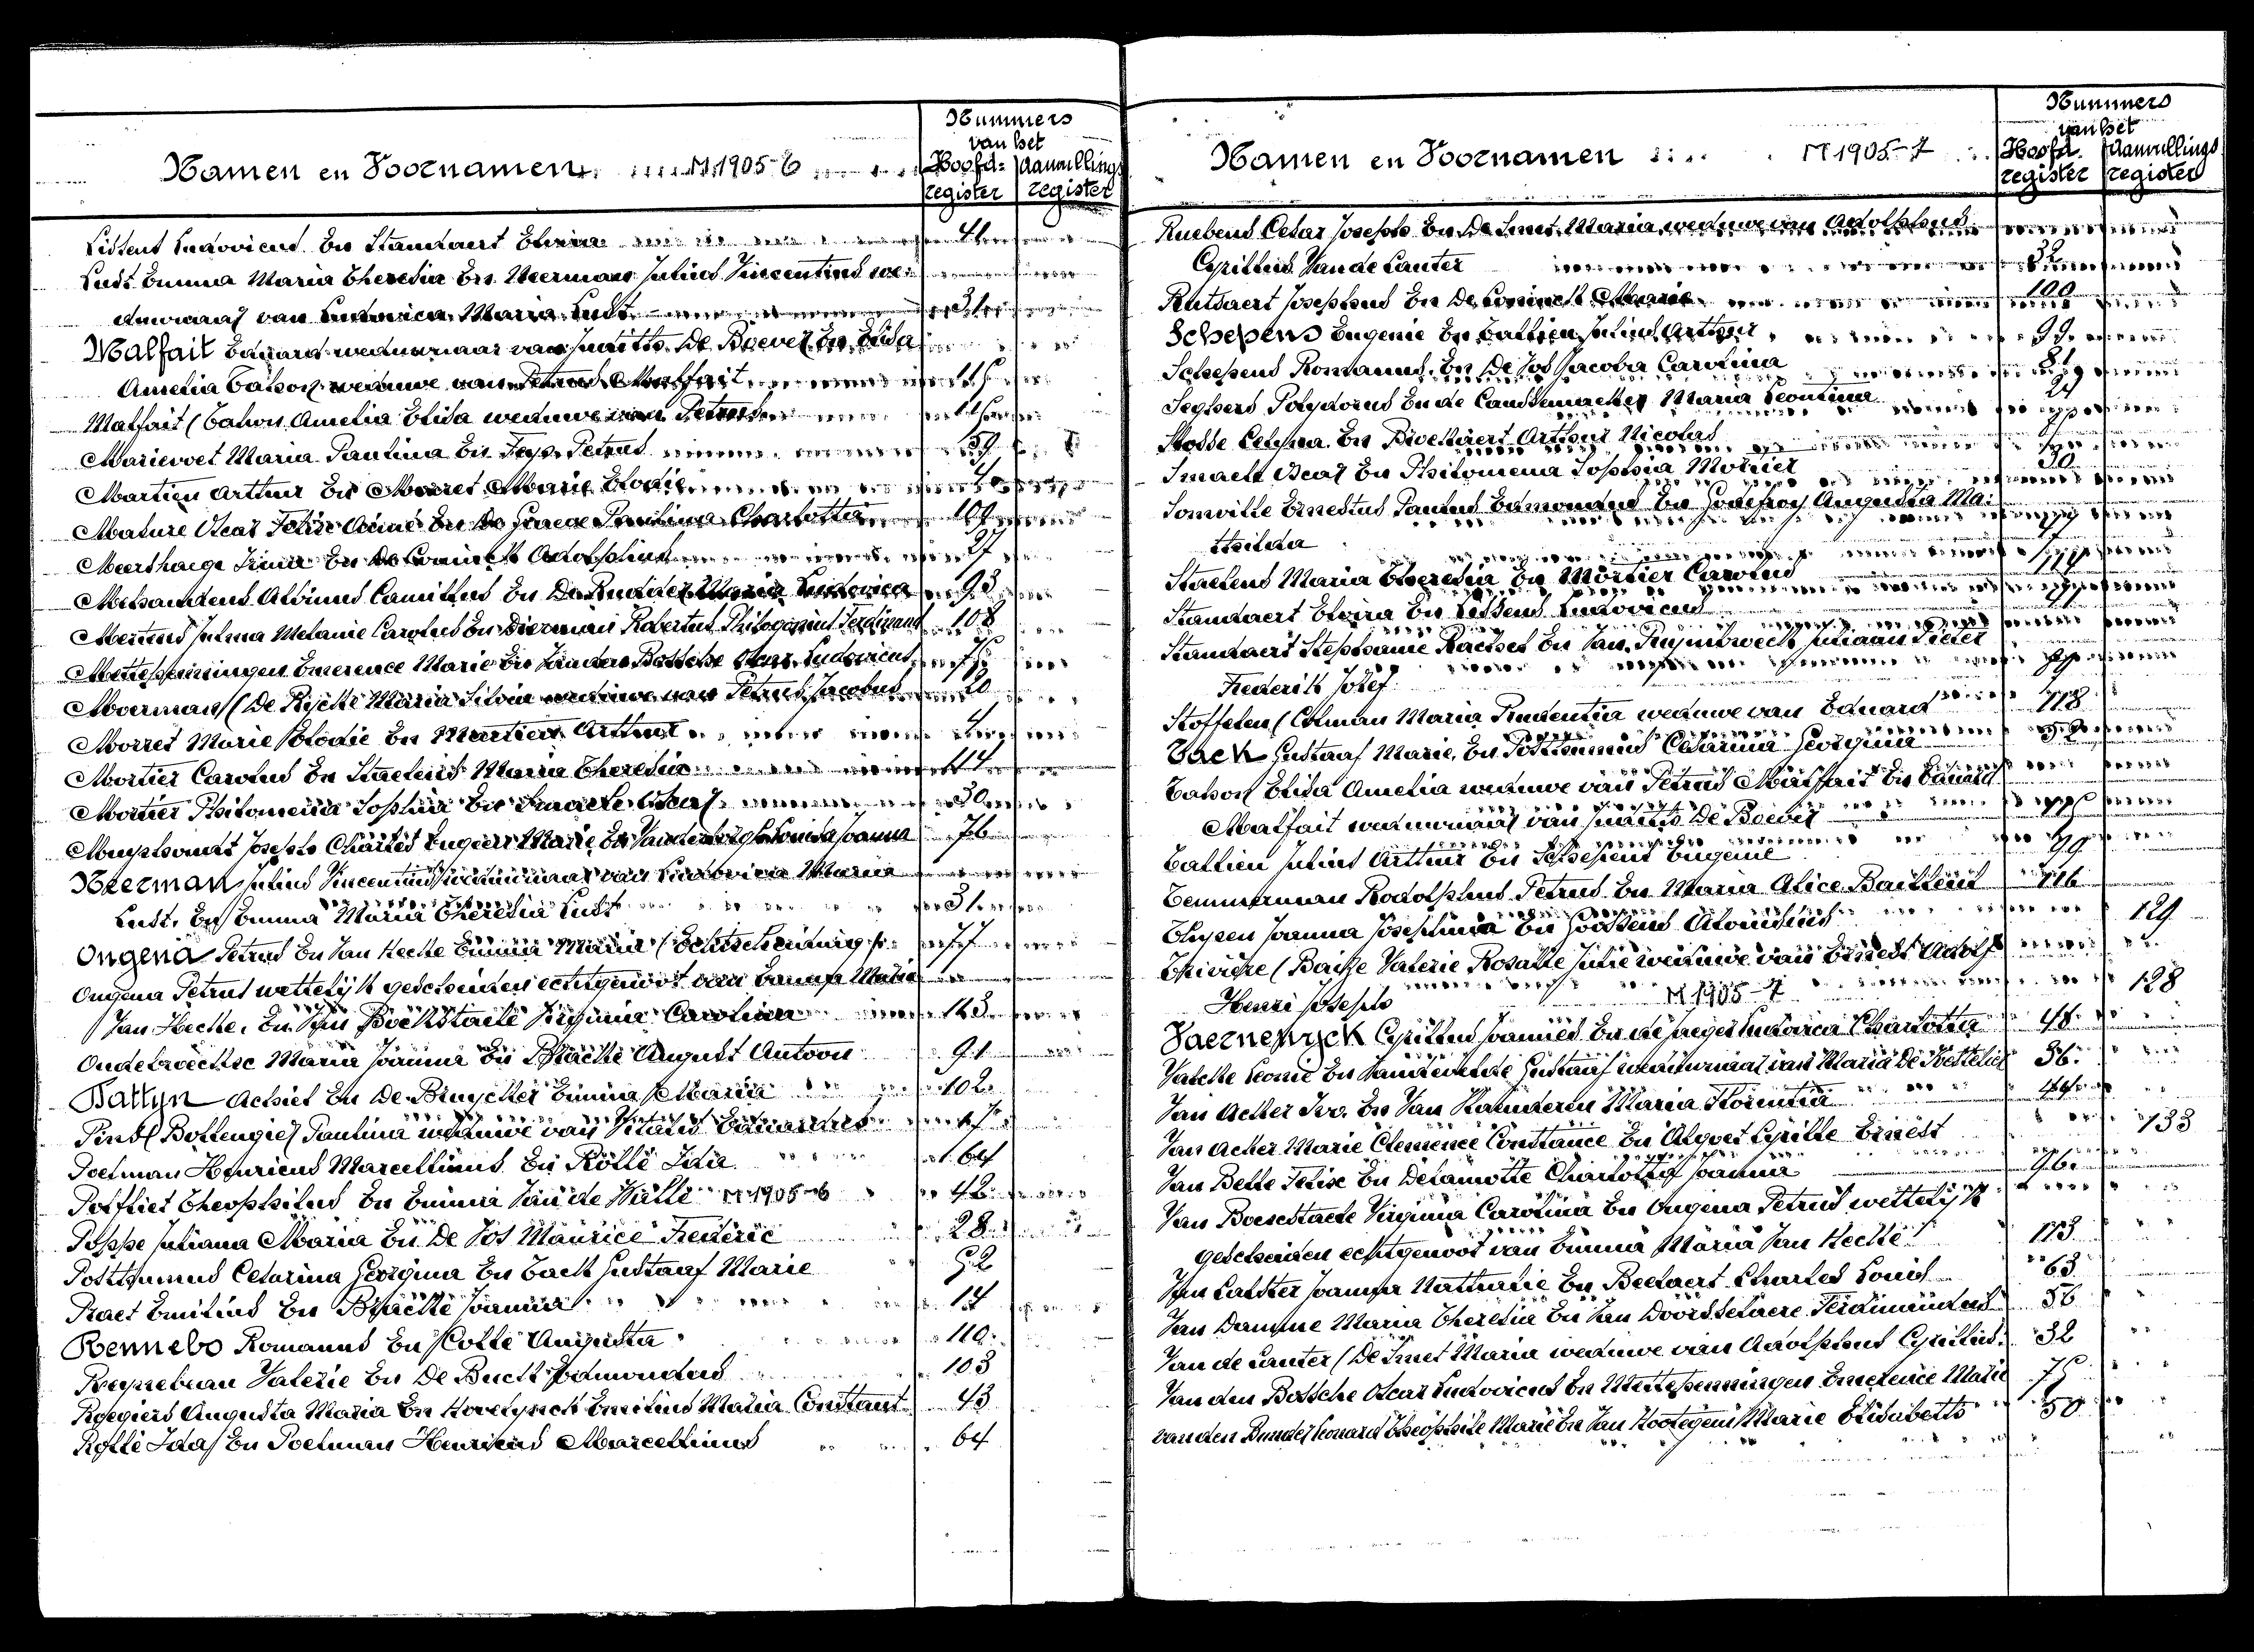 Namen en Voornamen M 1905-6
Nummers
van het
Hoofd- Aanvullings
register register
Lissens Ludovicus En Standaert Elvira 41
Lust Emma Maria Theresia En Neerman Julius Vincentius we-
duwnaar van Ludovica Maria Lust 31
Malfait Eduard weduwnaar van Juditha De Boever En Elisa
Amelia Tahon weduwe van Petrus Malfait 115
Malfait (Tahon Amelia Elisa weduwe van Petrus 115
Marievoet Maria Paulina En Petrus 59
Martien Arthur En Morret Marie Elodie 4
Masure Oscar Felix Aimé En De Graeve Paulina Charlotta 109
Meershaege Irma En De Coninck Adolphus 27
Mehauden Albinus Camillus En De Rudder Maria Ludovica 93
Mertens Julma Melanie Carolus En Dierman Robertus Philogonius Ferdinand 108
Mettepenningen Emerence Marie En Van den Bossche Oscar Ludovicus 75
Moerman (De Rycke Maria Silvia weduwe van Petrus Jacobus 20
Morret Marie Elodie En Martien Arthur 4
Mortier Carolus En Staelens Maria Theresia 114
Mortier Philomena Sophia En Smaele Oscar 30
Muyshondt Joseph Charles Eugeen Marie En Vandenberghe Louisa Joanna 76
Neerman Julius Vincentius weduwnaar van Ludovica Maria
Lust. En Emma Maria Theresia Lust 31
Ongena Petrus En Van Hecke Emma Maria (Echtscheiding 77
Ongena Petrus wettelijk gescheiden echtgenoot van Emma Maria
Van Hecke. En Van Bockstaele Virginia Carolina 113
Oudebroeckx Maria Joanna En Blacke August Antoon 91
Pattyn Achiel En De Bruycker Emma Maria 102
Pins (Bottengier Paulina weduwe van Vitalis Eduardus
Poelman Henricus Marcellinus En Rollé Ida 64
Potfliet Theophilus En Emma Van de Walle M 1905-6 42
Poppe Juliana Maria En De Vos Maurice Frederic 28
Posthumus Cesarina Georgina En Tack Gustaaf Marie 52
Praet Emilius En Blacke Joanna 14
Rennebo Romanus En Colle Augusta 110
Valerie En De Buck Edmondus 103
Roegiers Augusta Maria En Emilius Maria Constant 43
Rollé Ida En Poelman Henricus Marcellinus 64
Namen en Voornamen M 1905-7
Nummers
van het
Hoofd- Aanvullings
register register
Ruebens Cesar Joseph En De Smet Maria weduwe van Adolphus
Cyrillus Van de Cauter 32
Rutsaert Josephus En De Coninck Marie 100
Schepens Eugenie En Tallien Julius Arthur 99
Schepens Romanus En De Vos Jacoba Carolina 81
Seghers Polydorus En de Maria Leontina
Slosse Celyna En Arthur Nicolas
Smaele Oscar En Philomena Sophia Mortier 30
Somville Ernestus Paulus Edmondus En Godefroy Augusta Ma-
thilda
Staelens Maria Theresia En Mortier Carolus 114
Standaert Elvira En Lissens Ludovicus 41
Standaert Stephanie Rachel En Van Ruymbeeck Juliaan Pieter
Frederik Jozef
Stoffelen (Colman Maria Prudentia weduwe van Eduard 118
Tack Gustaaf Marie. En Posthumus Cesarina Georgina 52
Tahon Elisa Amelia weduwe van Petrus Malfait En Eduard
Malfait weduwnaar van Juditha De Boever 115
Tallien Julius Arthur En Schepens Eugenie 99
Temmerman Rodolphus Petrus En Maria Alice Baillieul 116
Thysen Joanna Josephina En Goossens Aloïsius 129
(Baisse Valerie Rosalie Julie weduwe van Ernest Adolf
Henri Joseph M 1905-7 128
Vaernewyck Cyrillus Joannes En de Jaeger Ludovica Charlotta 48
Valcke Leonie En Gustaaf weduwnaar van Maria De Ketteler 36
Van Acker Ivo. En Van Maria Florentia
Van Acker Marie Clemence Constance En Algoet Cyrille Ernest 133
Van Belle Felix En Delamotte Charlotta Joanna 96
Van Bocxstaele Virginia Carolina En Ongena Petrus wettelijk
gescheiden echtgenoot van Emma Maria Van Hecke 113
Van Joanna Nathalie En Beelaert Charles Louis 63
Van Damme Maria Theresia En Van Doorsselaere Ferdinandus 56
Van de Cauter (De Smet Maria weduwe van Adolphus Cyrillus. 32
Van den Bossche Oscar Ludovicus En Mettepenningen Emerence Marie 75
van den Leonard Theophile Marie En Van Hootegem Marie Elisabeth